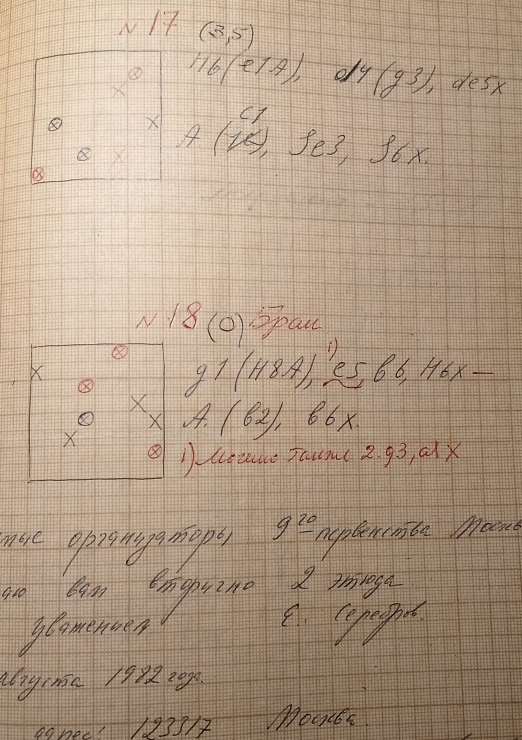 N 17 (3,5)
H6(e1A), d4(g3), de5x
c1
A (1c), ge3, g6x.
N 18 (0) Брак
1)
g1(H8A), e5, в6, H6x —
A. (в2), в6x.
1) Можно также 2. g3, a1 X
организаторы 9го первенства Москвы
вам вторично 2 этюда
уважением Е. Серебров.
августа 1982 года.
адрес: 123317 Москва.